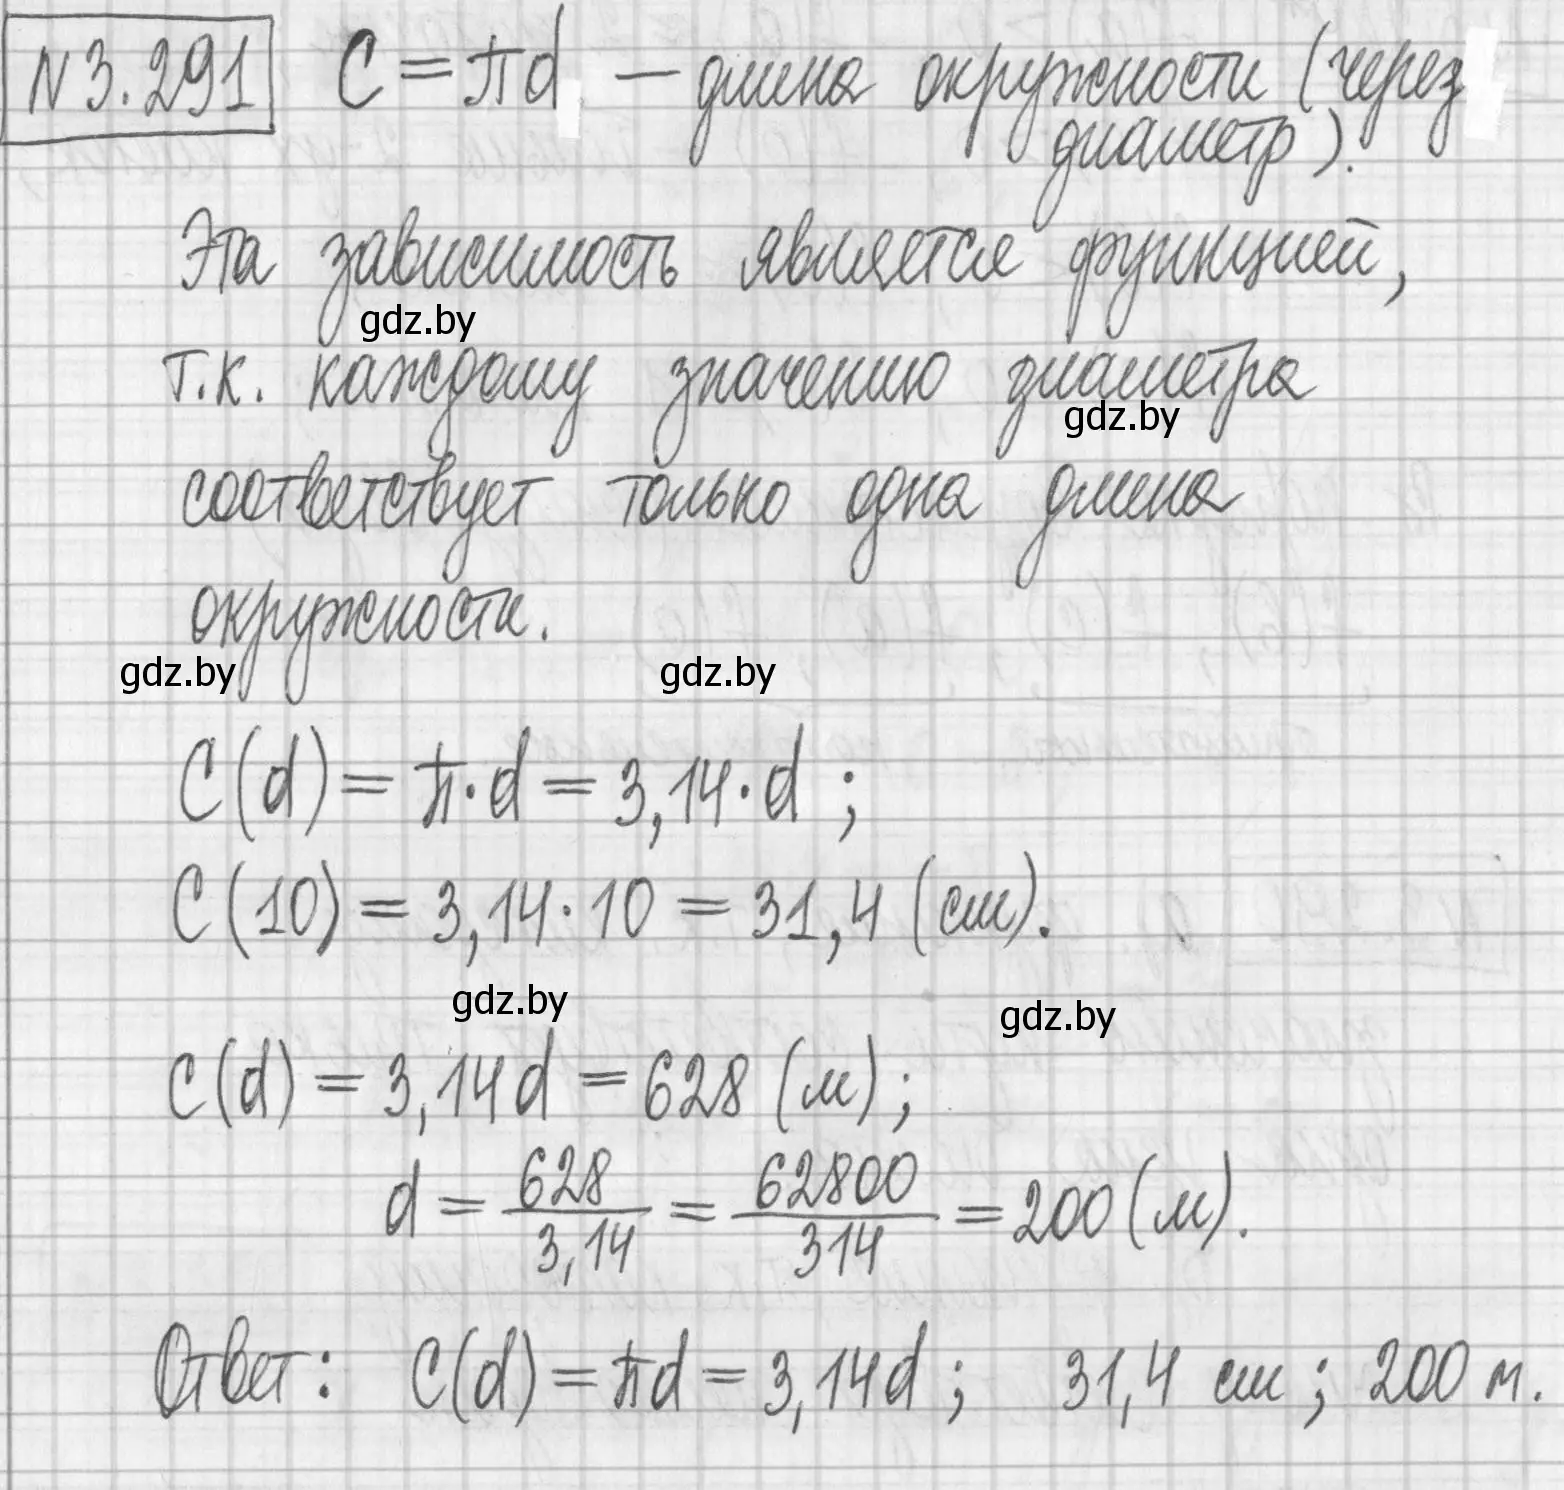 N 3.291 C = πd — длина окружности (через
диаметр).
Эта зависимость является функцией,
gdz.by
т.к. каждому значению диаметра
gdz.by
соответствует только одна длина
окружности.
gdz.by gdz.by
C(d) = π·d = 3,14·d ;
C(10) = 3,14·10 = 31,4 (см).
gdz.by gdz.by
C(d) = 3,14d = 628 (м);
d = 628/3,14 = 62800/314 = 200 (м).
Ответ: C(d) = πd = 3,14d ; 31,4 см ; 200 м.